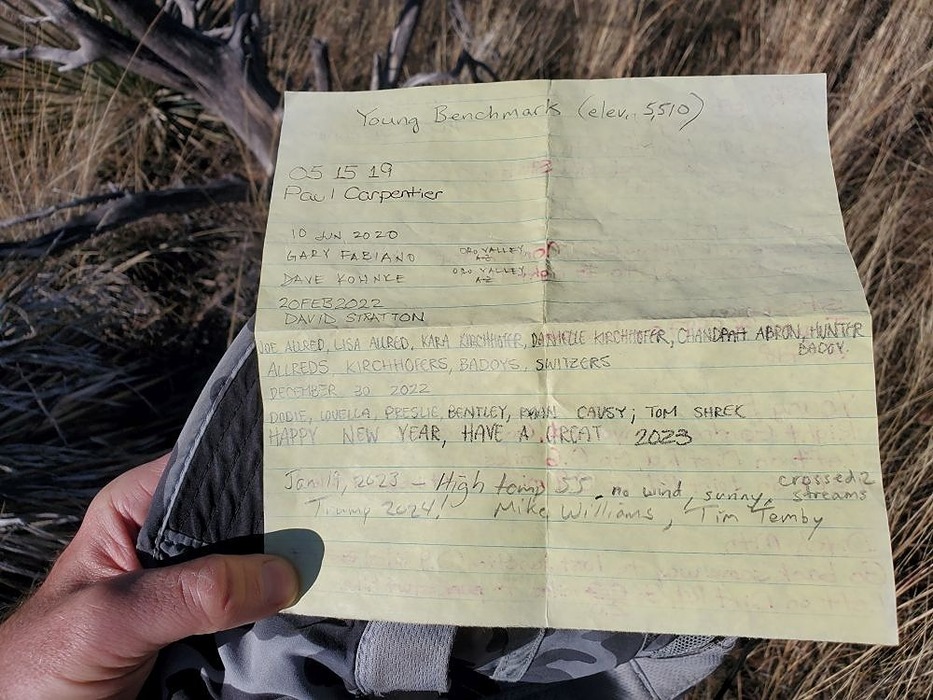 Young Benchmark (elev. 5,510)
05 15 19
Paul Carpentier
10 JUN 2020
GARY FABIANO ORO VALLEY, AZ
DAVE KOHNKE ORO VALLEY AZ
20FEB2022
DAVID STRATTON
JOE ALLRED, LISA ALLRED, KARA KIRCHHOFER, DANIELLE KIRCHHOFER, CHANDRAH ABRON, HUNTER BADOY.
ALLREDS, KIRCHHOFERS, BADOYS, SWITZERS
DECEMBER 30 2022
DODIE, LOUELLA, PRESLIE, BENTLEY, CAUSY; TOM SHREK
HAPPY NEW YEAR, HAVE A GREAT 2023
Jan 19, 2023 - High temp 55, no wind, sunny, crossed 2 streams
Trump 2024! Mike Williams, Tim Temby